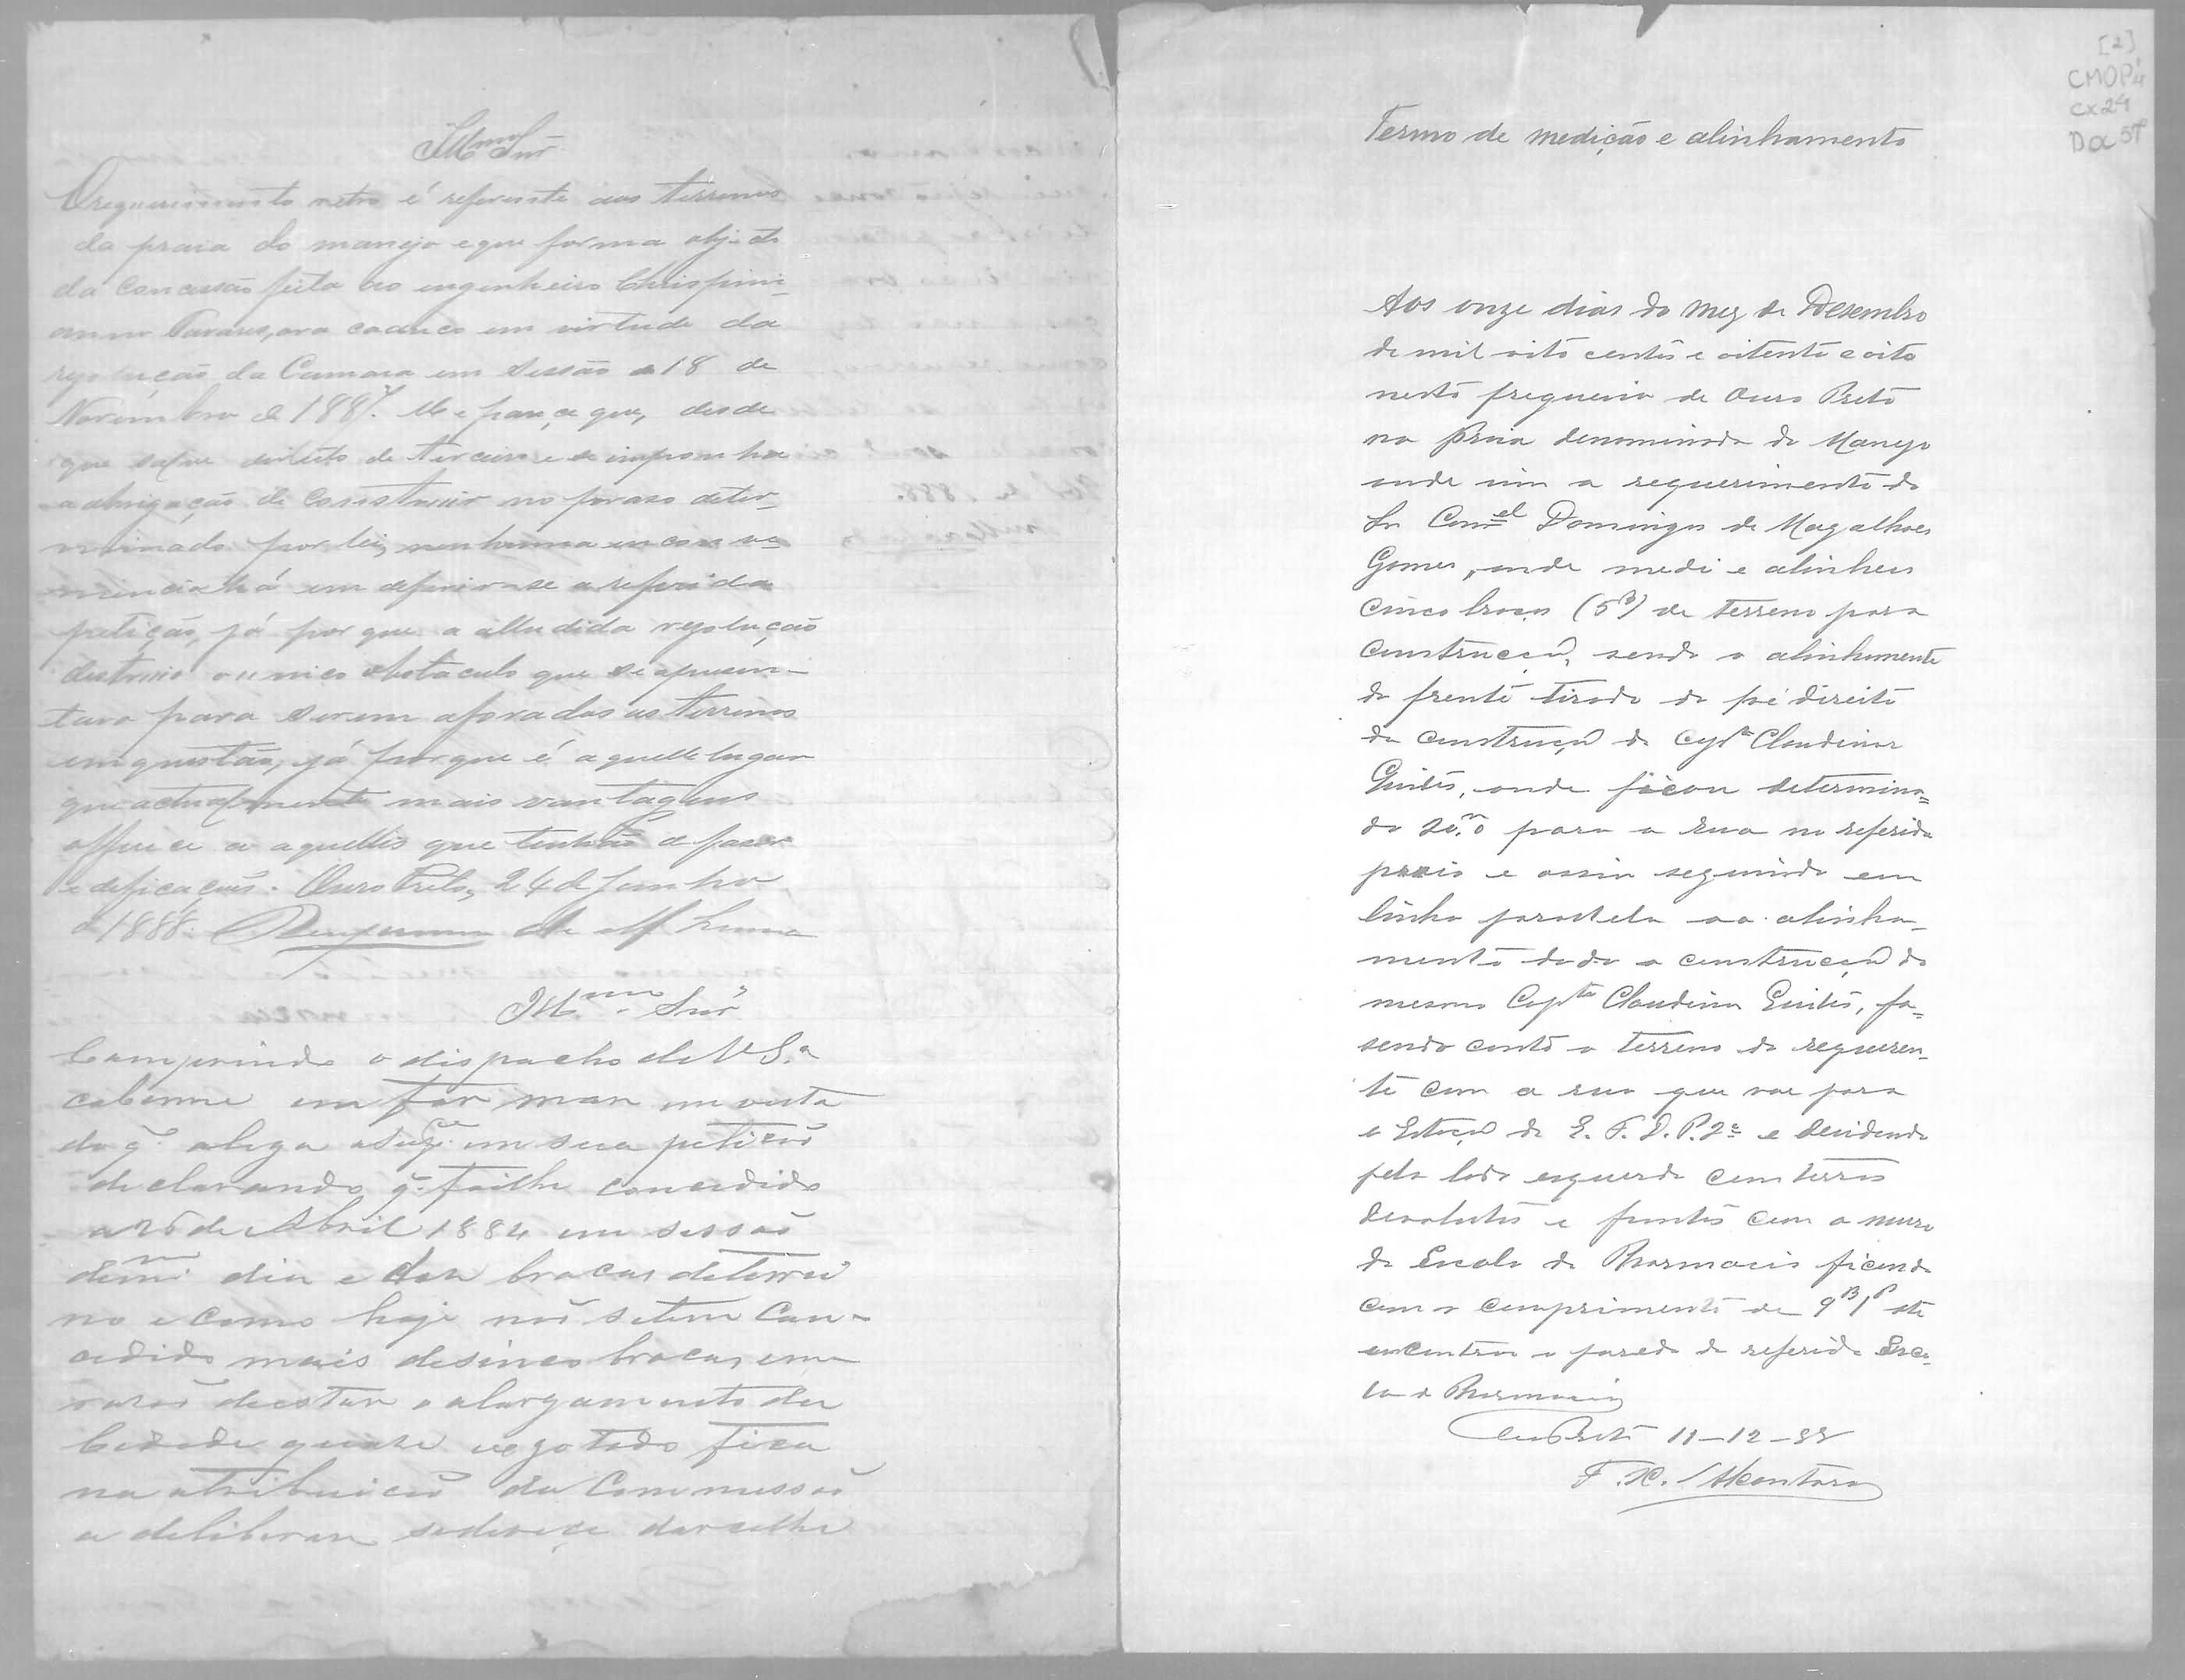 Illmo Snr
O requerimento retro é referente aos terrenos
da praia do manejo e que forma objecto
da concessão feita ao engenheiro Chrispini-
anno Tavares, ora caduco em virtude da
resolução da Camara em sessão de 18 de
Novembro de 1887. Me parece que, desde
que salve direito de terceiro e se imponha
a obrigação de construir no praso deter-
minado por lei, nenhuma inconve-
niencia há em deferir-se a referida
petição, já por que a alludida resolução
destruio o unico obstaculo que se apresen-
tava para serem aforados os terrenos
em questão, já porque é aquelle lugar
que actualmente mais vantagens
offerece a aquelles que tenhão de faser
edificações. Ouro Preto, 24 de Junho
de 1888.
Illmo Snr
Comprindo o dispacho de V S.a
cabeme em formar em vista
do q. alega o Sup.e em sua petição
declarando q. foilhe concedido
a 26 de Abril 1884 em sessão
deste dia e des bracas de terre
no e como hoje não se tem con-
cedido mais de sinco bracas em
rasão de estar o alargamento da
Cidade quase esgotado fica
na atribuicão da Commissão
a deliberar se deve-se darselhe
[2]
CMOP
cx 24
Do 57
Termo de medição e alinhamento
Aos onze dias do mez de Desembro
de mil oito centos e oitenta e oito
nesta freguesia de Ouro Preto
na Praia denominada do Manejo
onde vim a requerimento do
Sr Coronel Domingos de Magalhães
Gomes, onde medi e alinhei
cinco braças (5B) de terreno para
construcção, sendo o alinhamento
da frente tirado do pé direito
da construção do Capm Claudino
Quites, onde ficou determina=
do 20,m0 para a rua na referida
praia e assim seguindo em
linha paralela ao alinha-
mento dado a construcção do
mesmo Captm Claudino Quites, fa=
sendo canto o terreno do requeren-
te com a rua que vae para
a Estação da E. F. D. P. 2º e devidindo
pelo lado esquerdo com terras
devolutas e fundos com o muro
da Escola de Pharmacia ficando
com o comprimento de 9B 1P até
encontrar a parede da referida Esco-
la de Pharmacia
Ouro Preto 11-12-88
F. X. Alcantara